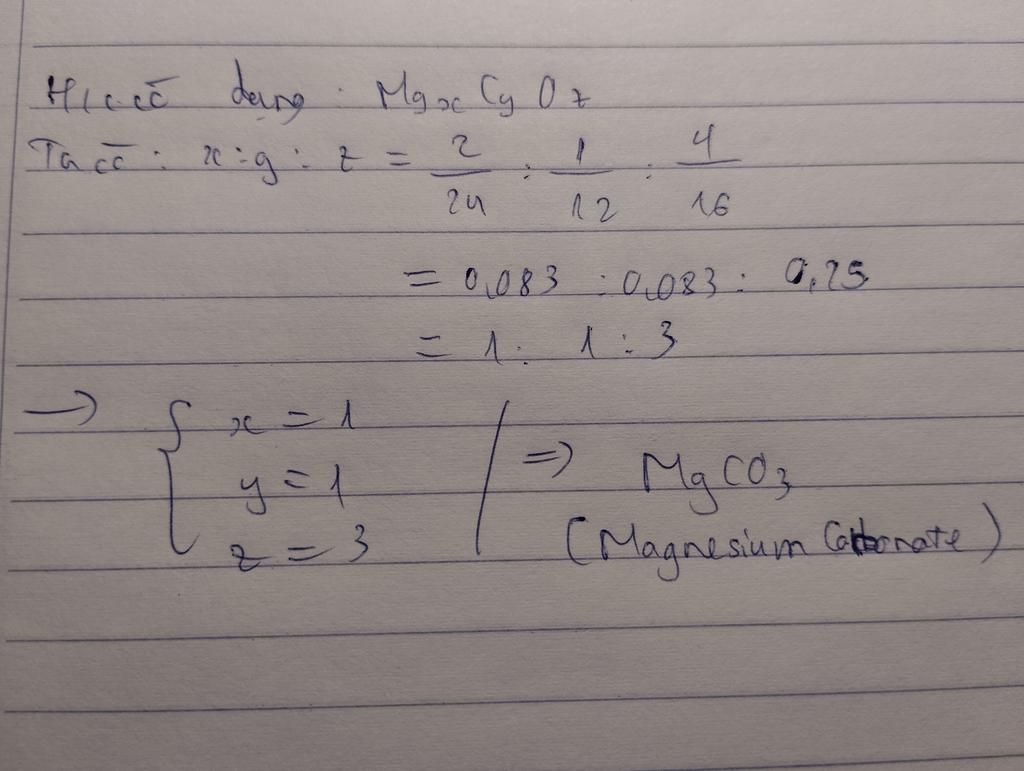 H/c có dạng: MgxCyOz
Ta có: x:y:z = 2/24 : 1/12 : 4/16
= 0,083 : 0,083 : 0,25
= 1 : 1 : 3
→ { x = 1
y = 1
z = 3
⇒ MgCO3
(Magnesium Carbonate)